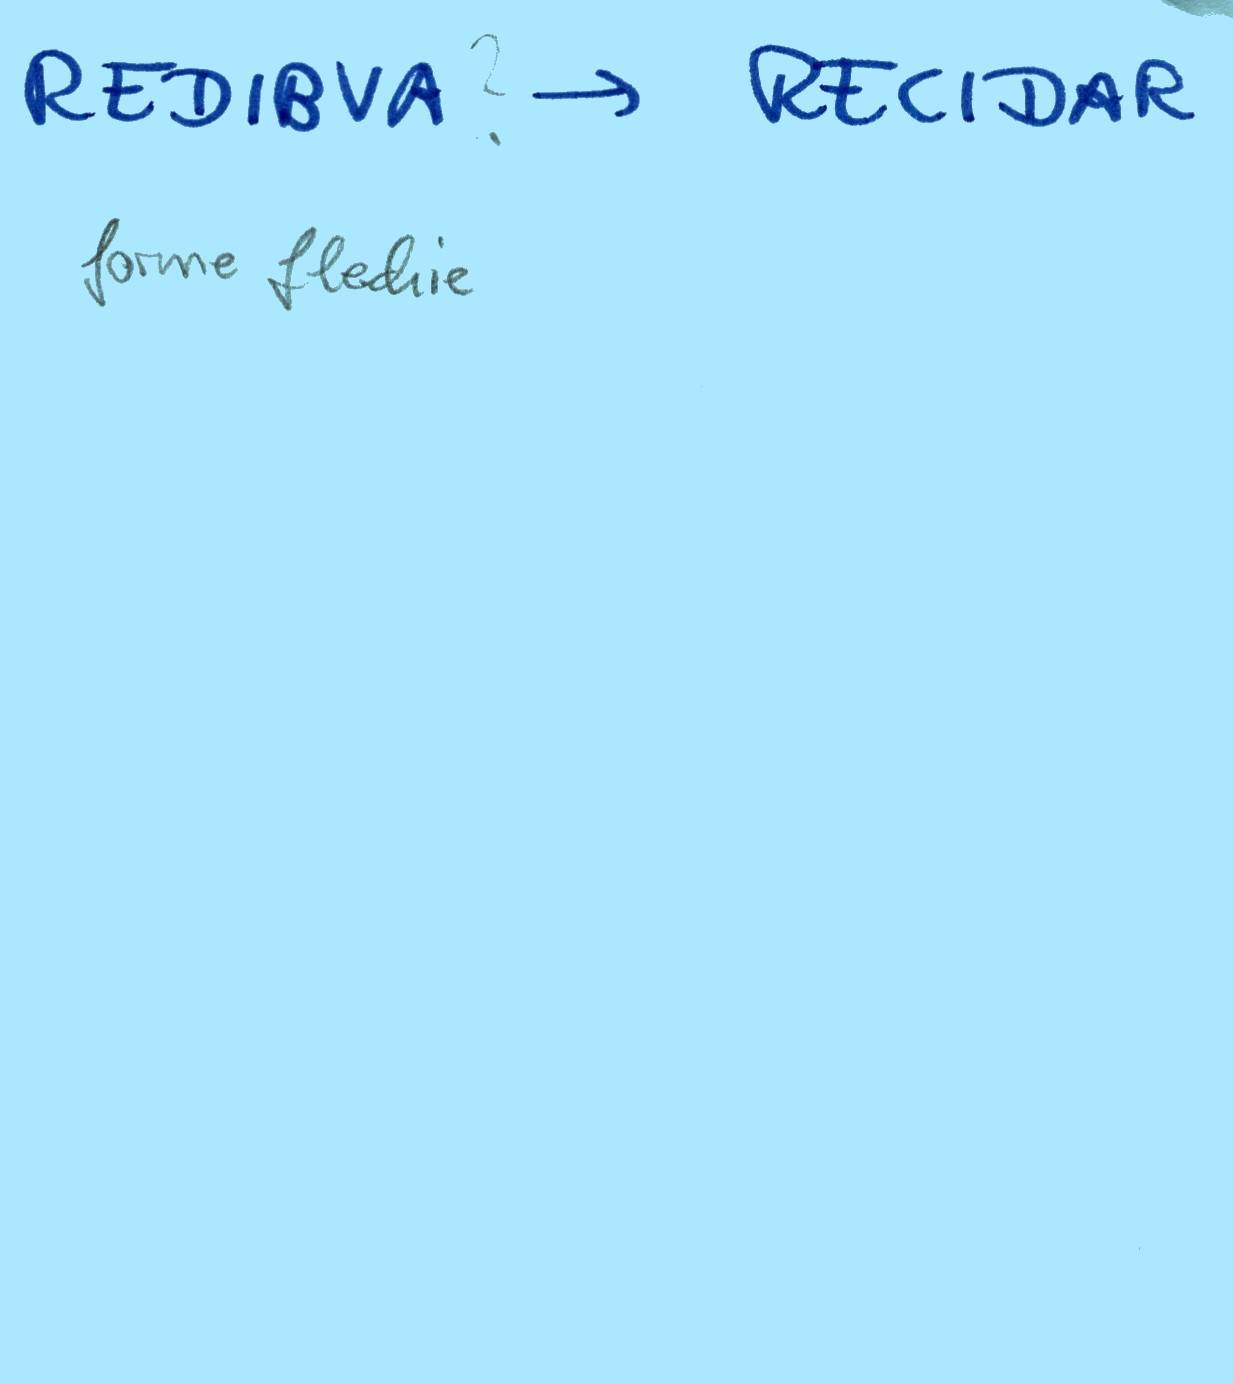 REDIBVA ? → RECIDAR
forme flechie